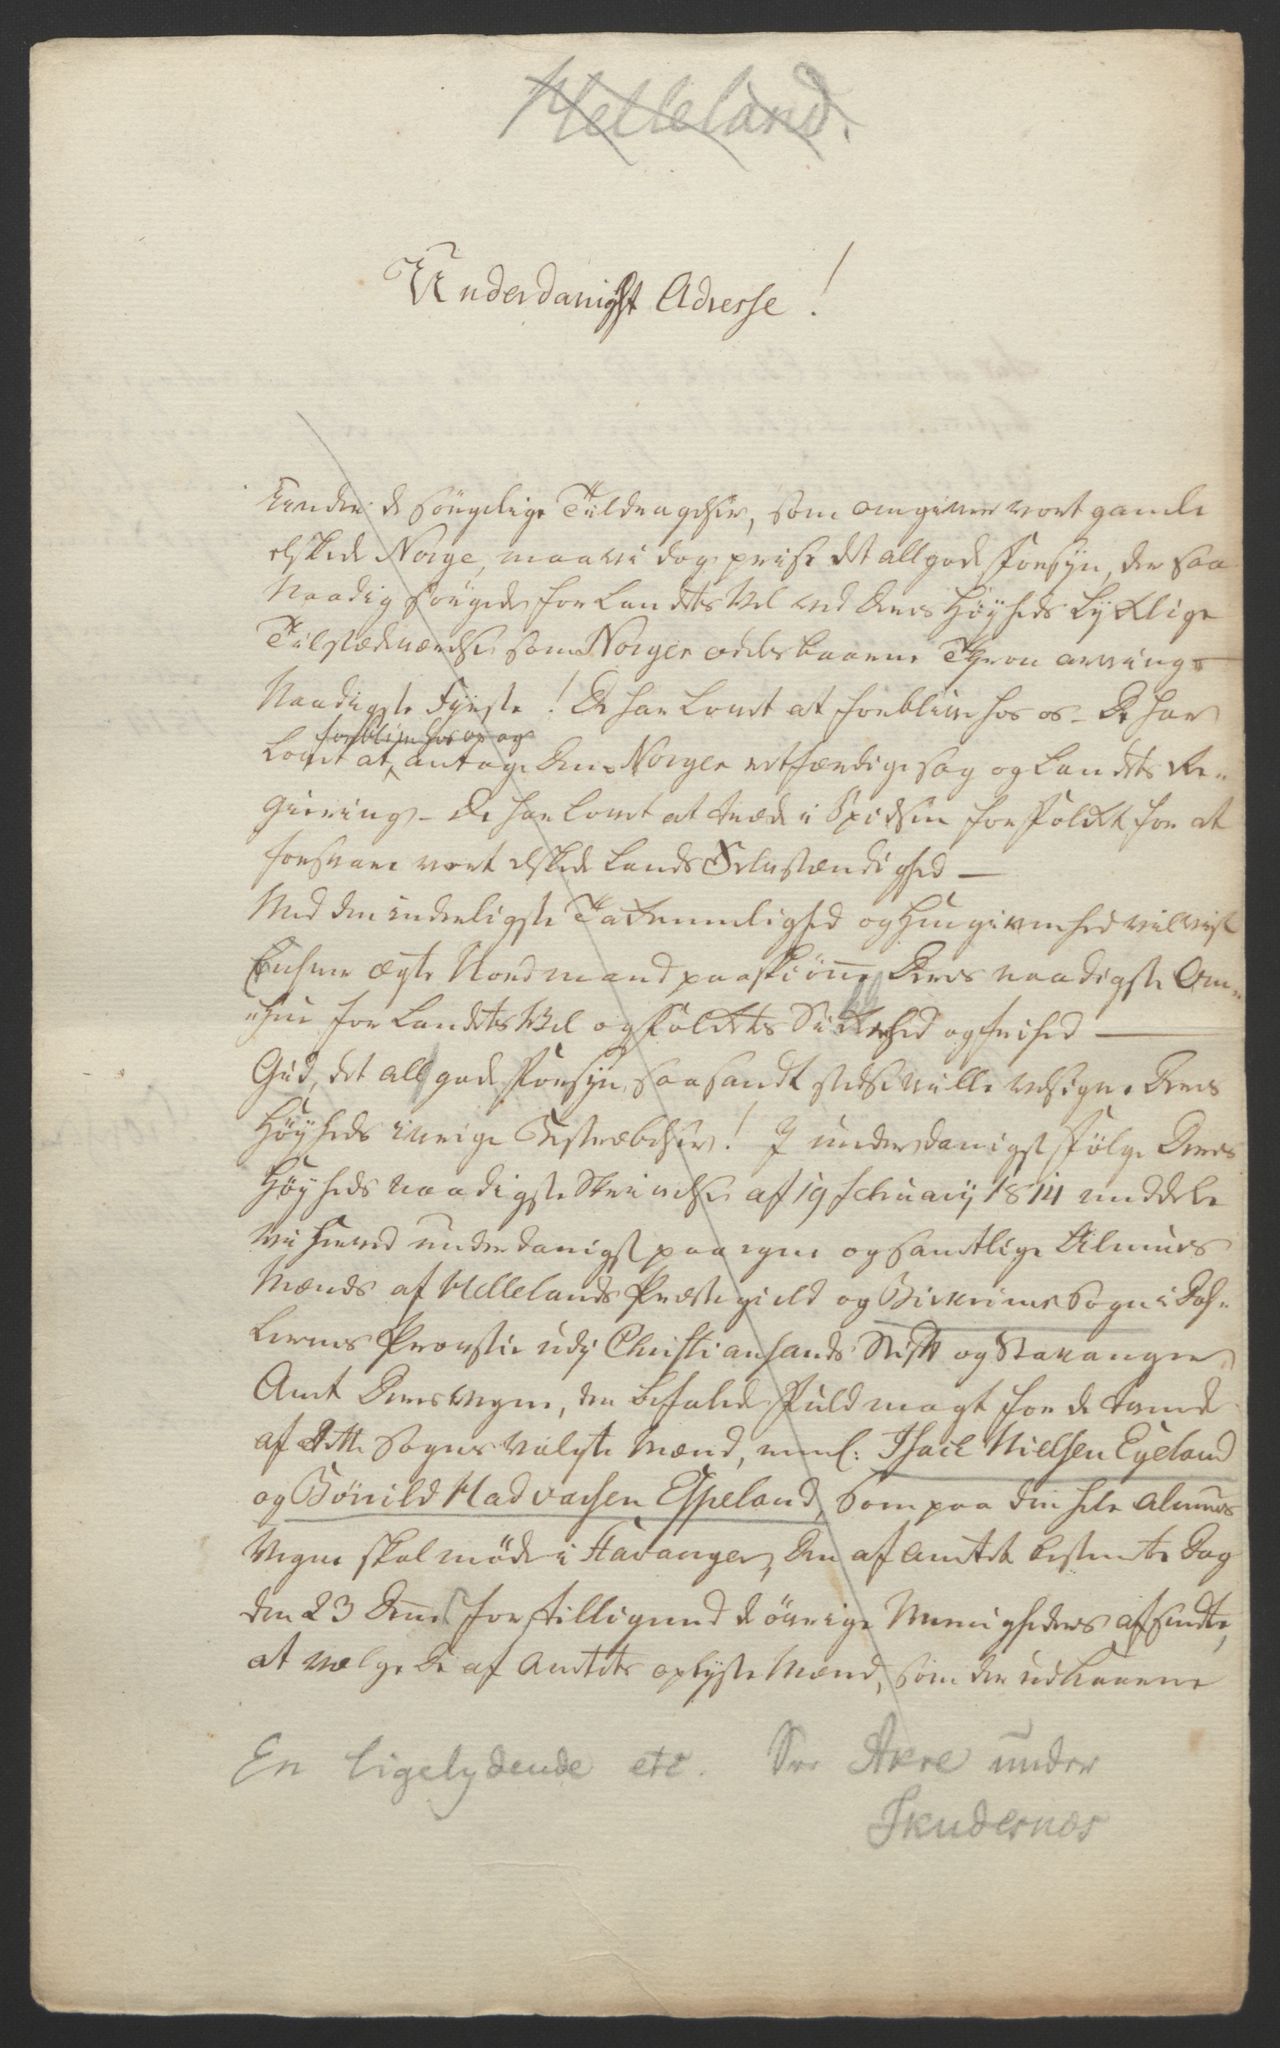 Helleland.
Underdanigst Adresse!
Under de sörgelige Tildragelser, som omgiver vort gamle
elskede Norge, maa vi dog prise det allgode Forsyn, der saa
Naadig sörgede for Landets Vel ved Deres Höyheds lyklige
Tilstædeværelse som Norges odelsbaarne Thron arving –
Naadigste Fyrste! De har Lovet at forblive hos os – De har
forblive hos os og
Lovet at antage Dem Norges retfærdige sag og Landets Re-
giering – De har lovet at træde i Spidsen for Folket for at
forsvare vort elskede Lands Selvstændighed —
Med den inderligste Taknemmelighed og Hengivenhed vil vist
Enhver ægte Nordmand paaskiönne Deres naadigste Om-
hue for Landets Vel og Folkets Sikkerhed og frihed —
Gud, det allgode Forsyn, saa sandt stedse ville velsigne Deres
Höyheds ivrige Bestræbelser! I underdanigst Fölge Deres
Höyheds naadigste Skrivelse af 19 februarij 1814 meddele
vi herved underdanigst paa egne og samtlige Almues
Mænds af Hellelands Præstegield og Birkrims Sogn i Dah-
lernes Provstie udj Christiansands Stift og Stavanger
Amt Deres vegne, den befalede Fuldmagt for de tvende
af dette Sogns valgte Mænd, neml: Isack Nielsen Eyeland
og Bönild Hadvarsen Espeland, som paa den hele Almues
Vegne skal möde i Stavanger, den af Amtet bestemte Dag
den 23 Dennes for tilligemed de övrige Menigheders afsendte,
at vælge De af Amtets oplyste Mænd, som der udkaarne
En ligelydende etc. Se Akre under
Skudesnes